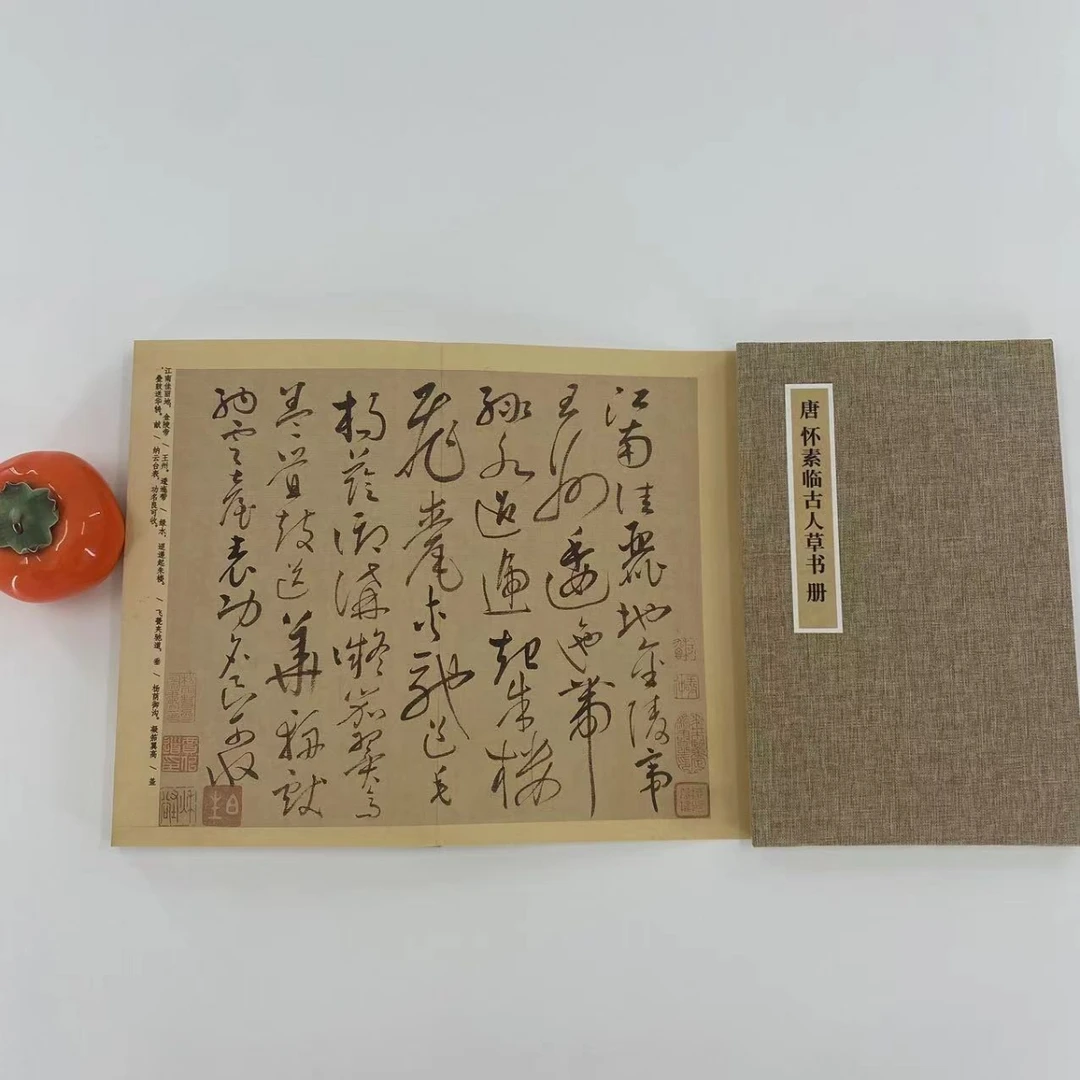 唐 怀素临古人草书 册
江南佳麗地金陵帝
王州逶迤帶
綠水迢遞起朱樓
飛甍夾馳道垂
楊蔭御溝凝笳翼高
蓋疊鼓送華輈獻
納雲臺表功名良可收
江南佳丽地，金陵帝 / 王州。逶迤带 / 绿水，迢递起朱楼。 / 飞甍夹驰道，垂 / 杨荫御沟。凝笳翼高 / 盖
，叠鼓送华辀。献 / 纳云台表，功名良可收。